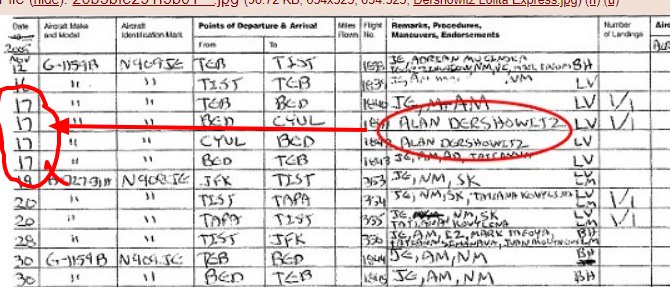 (hide): 20b9bfc29f19b01 .jpg (96.72 KB, 654x525, 654:525, Dershowitz Lolita Express.jpg) (h) (u)
Date Aircraft Make and Model Aircraft Identification Mark Points of Departure & Arrival Miles Flown Flight No. Remarks, Procedures, Maneuvers, Endorsements Number of Landings
From To
2005
NOV 12 G-1159B N909JE TEB TIST JE, ADRIAN BH
16 " " TIST TEB JE, AM NM LV
17 " " TEB BED JE, AM LV 1/1
17 " " BED CYUL ALAN DERSHOWITZ LV 1/1
17 " " CYUL BED ALAN DERSHOWITZ LV
17 " " BED TEB 1843 JE, AM, AD, TATIANNA LV
19 N908JE JFK TIST 353 JE, NM, SK LV LM
20 " " TIST TAPA 354 JE, NM, SK, TATIANA LV LM 1/1
20 " " TAPA TIST 355 JE, NM, SK TATIANA LV LM 1/1
28 " " TIST JFK 356 JE, AM, MARK BH LM
30 G-1159B N909JE TEB BED 1844 JE, AM, NM BH
30 " " BED TEB 1845 JE, AM, NM BH